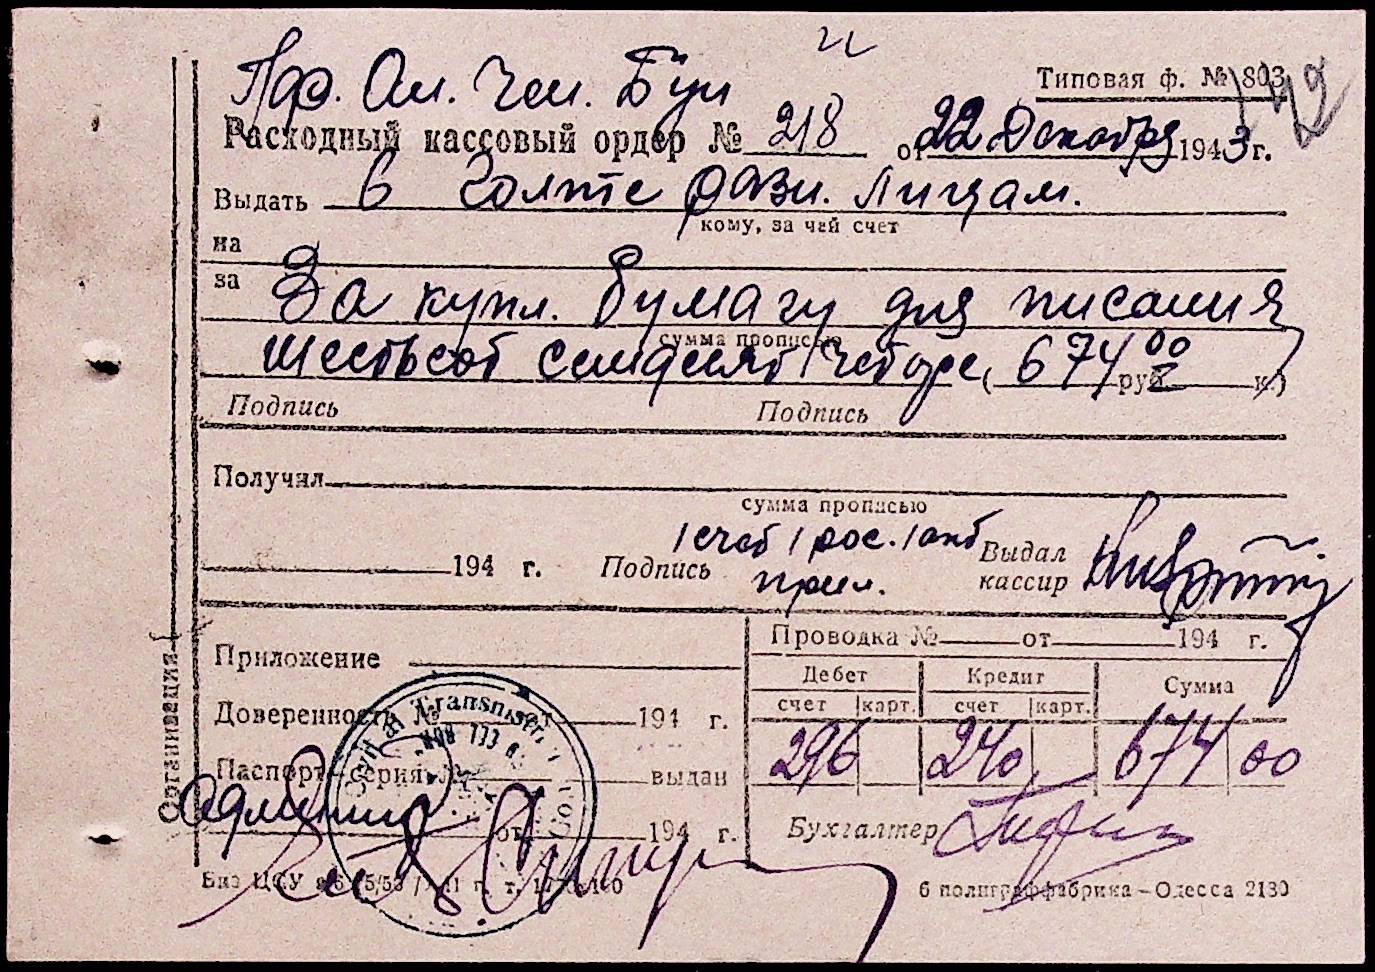 Типовая ф. № 803
142
Расходный кассовый ордер № 218 от 22 Декабря 1943 г.
Выдать в Голте разн. лицам.
кому, за чей счет
на
за За купл. бумагу для писания
сумма прописью
шестьсот семдесят четыре (674 руб. 00 к.)
Подпись Подпись
Получил
сумма прописью
1 счет 1 рос. 1 акт
194 г. Подпись прил. Выдал кассир
Приложение
Проводка № от 194 г.
Дебет Кредит Сумма
счет карт. счет карт.
Доверенность № от 194 г.
296 240 674 00
Паспорт серия № выдан
от 194 г.
Бухгалтер
6 полиграффабрика — Одесса 2130
Организация